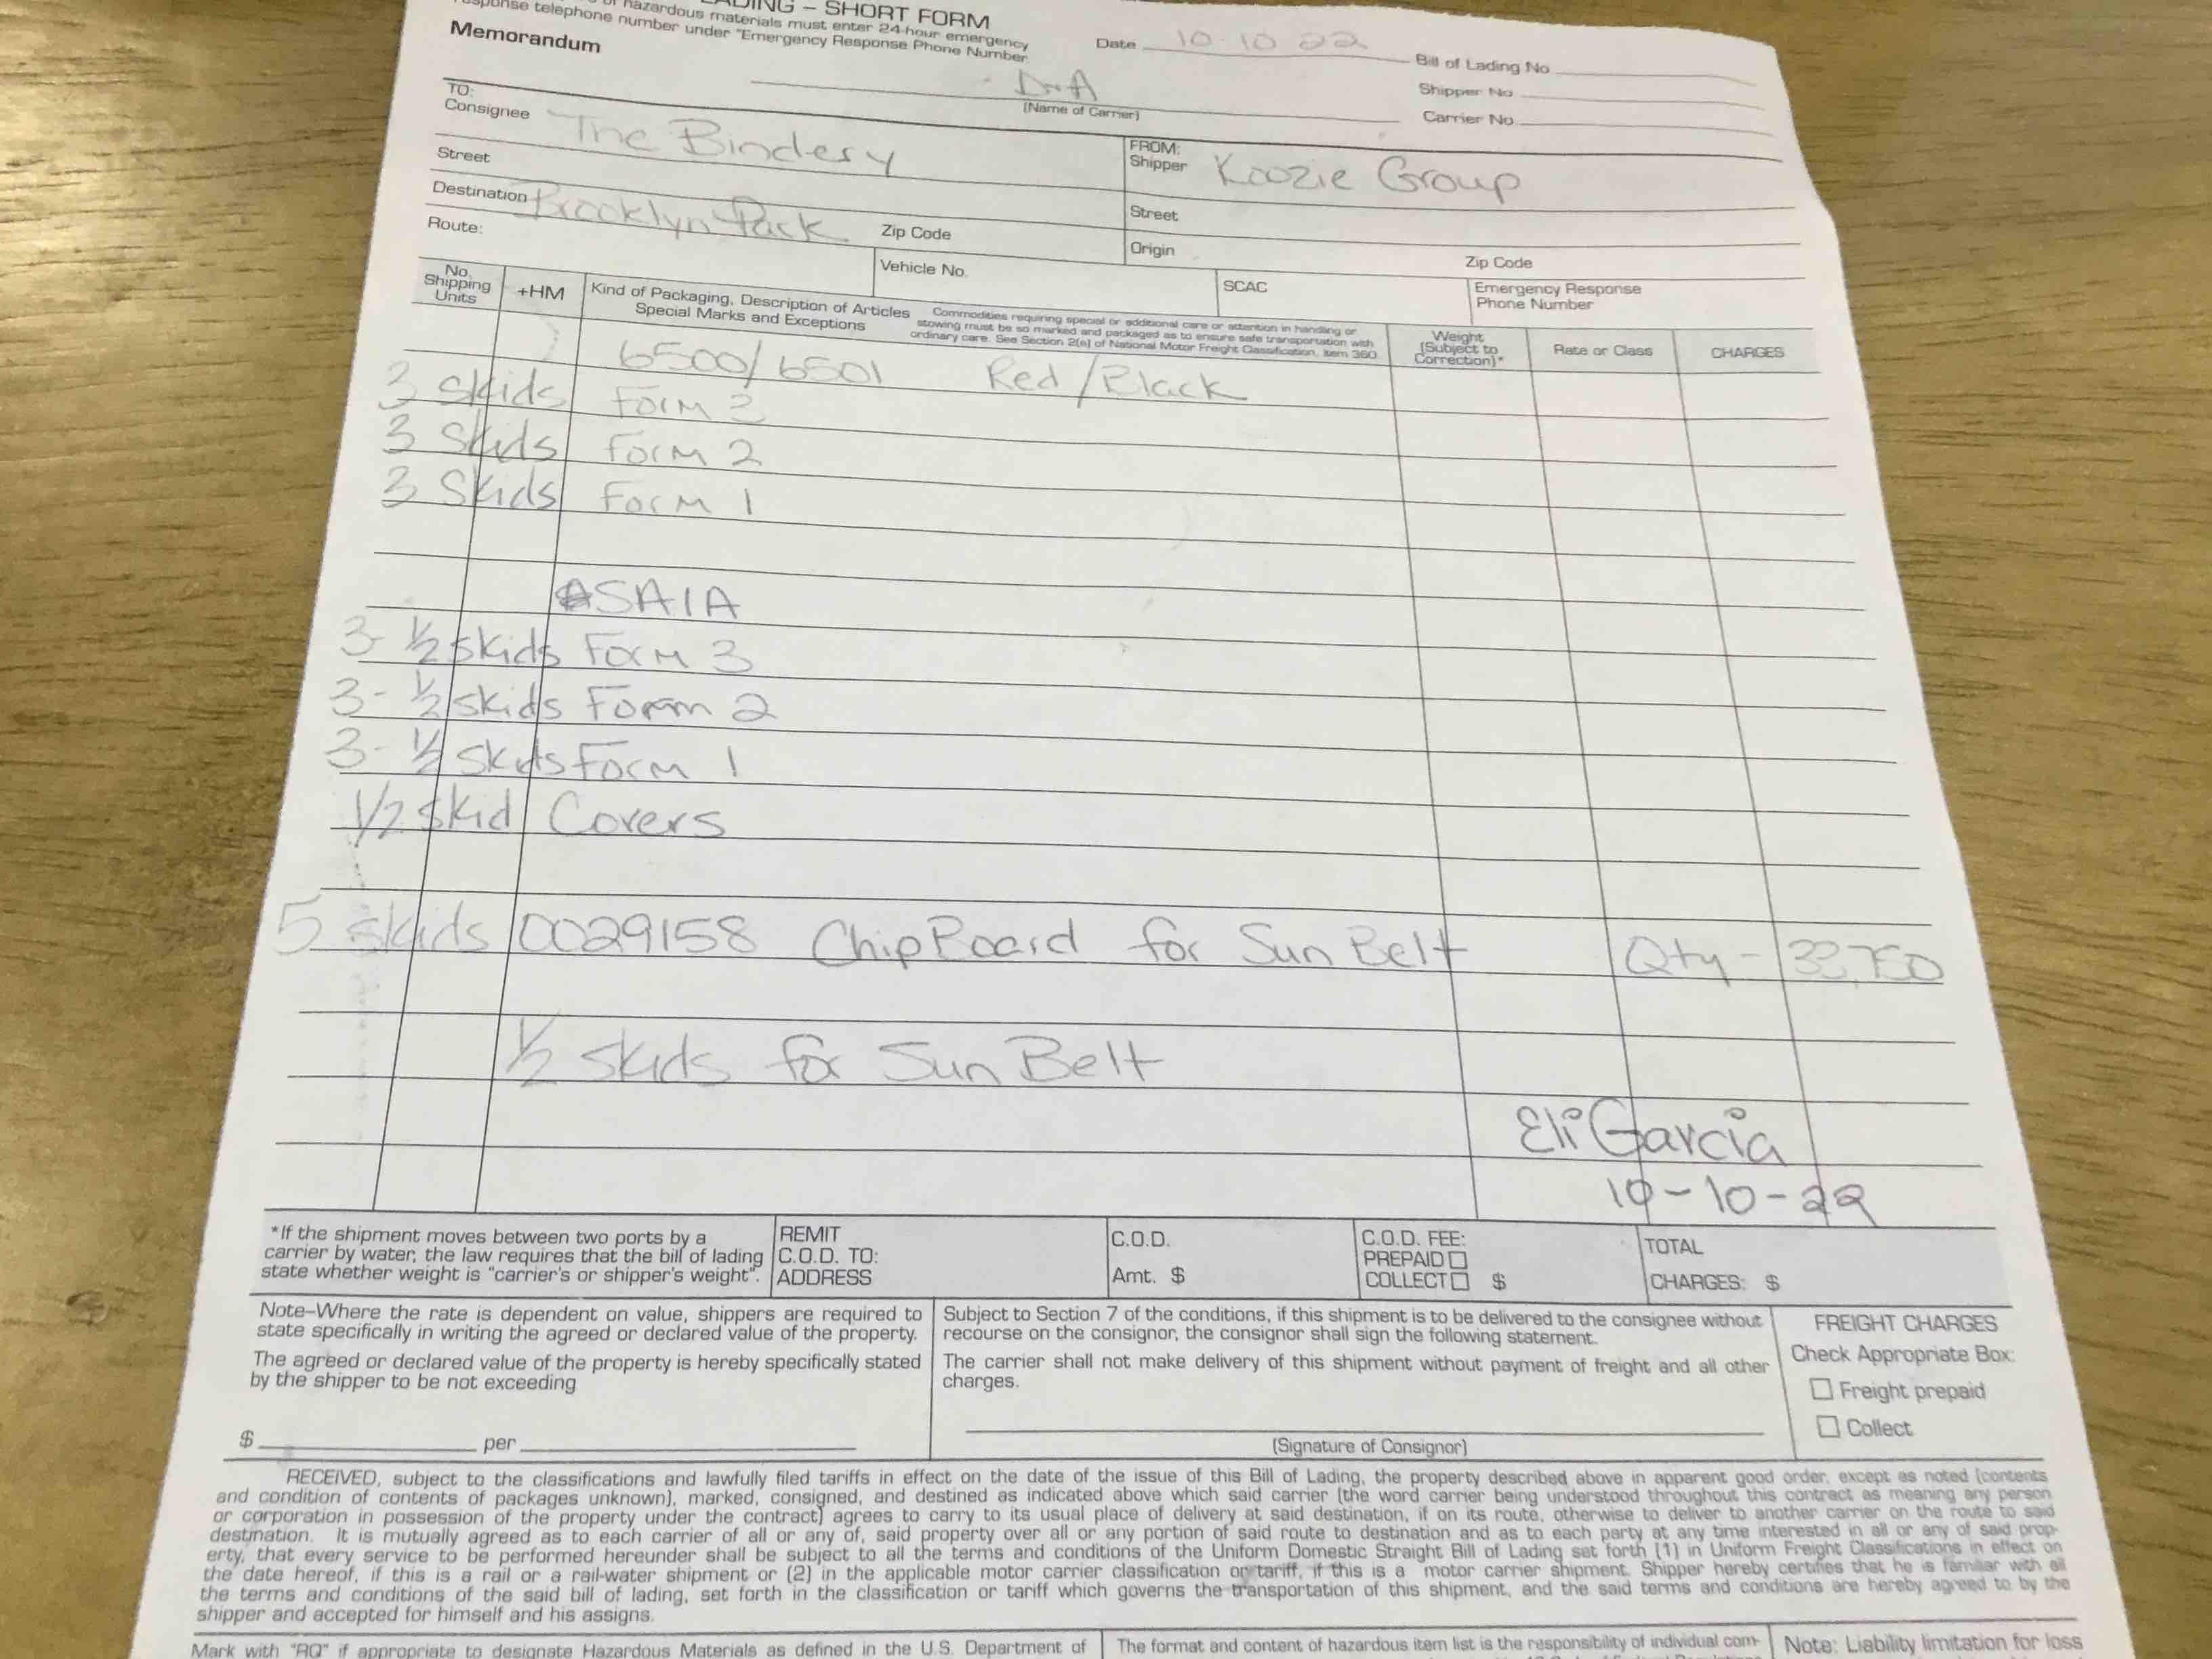 LADING – SHORT FORM
of hazardous materials must enter 24-hour emergency
response telephone number under "Emergency Response Phone Number
Memorandum
Date 10 10 22
Bill of Lading No
Shipper No
Carrier No
(Name of Carrier)
TO:
Consignee The Bindery
FROM:
Shipper Koozie Group
Street
Street
Destination Brooklyn Park Zip Code
Origin Zip Code
Route:
Vehicle No.
SCAC
Emergency Response
Phone Number
No.
Shipping
Units
+HM
Kind of Packaging, Description of Articles
Special Marks and Exceptions
Commodities requiring special or additional care or attention in handling or
stowing must be so marked and packaged as to ensure safe transportation with
ordinary care. See Section 2(e) of National Motor Freight Classification, Item 360
Weight
(Subject to
Correction)*
Rate or Class
CHARGES
6500/6501 Red/Black
3 skids Form 3
3 Skids Form 2
3 Skids Form 1
SAIA
3- 1/2 skids Form 3
3- 1/2 skids Form 2
3- 1/2 skids Form 1
1/2 skid Covers
5 skids 0029158 ChipBoard for Sun Belt Qty - 33,750
1/2 skids for Sun Belt
Eli Garcia
10-10-22
*If the shipment moves between two ports by a
carrier by water, the law requires that the bill of lading
state whether weight is "carrier's or shipper's weight".
REMIT
C.O.D. TO:
ADDRESS
C.O.D.
Amt. $
C.O.D. FEE:
PREPAID
COLLECT $
TOTAL
CHARGES: $
Note–Where the rate is dependent on value, shippers are required to
state specifically in writing the agreed or declared value of the property.
The agreed or declared value of the property is hereby specifically stated
by the shipper to be not exceeding
$ per
Subject to Section 7 of the conditions, if this shipment is to be delivered to the consignee without
recourse on the consignor, the consignor shall sign the following statement.
The carrier shall not make delivery of this shipment without payment of freight and all other
charges.
(Signature of Consignor)
FREIGHT CHARGES
Check Appropriate Box:
Freight prepaid
Collect
RECEIVED, subject to the classifications and lawfully filed tariffs in effect on the date of the issue of this Bill of Lading, the property described above in apparent good order, except as noted (contents
and condition of contents of packages unknown), marked, consigned, and destined as indicated above which said carrier (the word carrier being understood throughout this contract as meaning any person
or corporation in possession of the property under the contract) agrees to carry to its usual place of delivery at said destination, if on its route, otherwise to deliver to another carrier on the route to said
destination. It is mutually agreed as to each carrier of all or any of, said property over all or any portion of said route to destination and as to each party at any time interested in all or any of said prop-
erty, that every service to be performed hereunder shall be subject to all the terms and conditions of the Uniform Domestic Straight Bill of Lading set forth (1) in Uniform Freight Classifications in effect on
the date hereof, if this is a rail or a rail-water shipment or (2) in the applicable motor carrier classification or tariff, if this is a motor carrier shipment. Shipper hereby certifies that he is familiar with all
the terms and conditions of the said bill of lading, set forth in the classification or tariff which governs the transportation of this shipment, and the said terms and conditions are hereby agreed to by the
shipper and accepted for himself and his assigns.
Mark with "RQ" if appropriate to designate Hazardous Materials as defined in the U.S. Department of
The format and content of hazardous item list is the responsibility of individual com-
Note: Liability limitation for loss